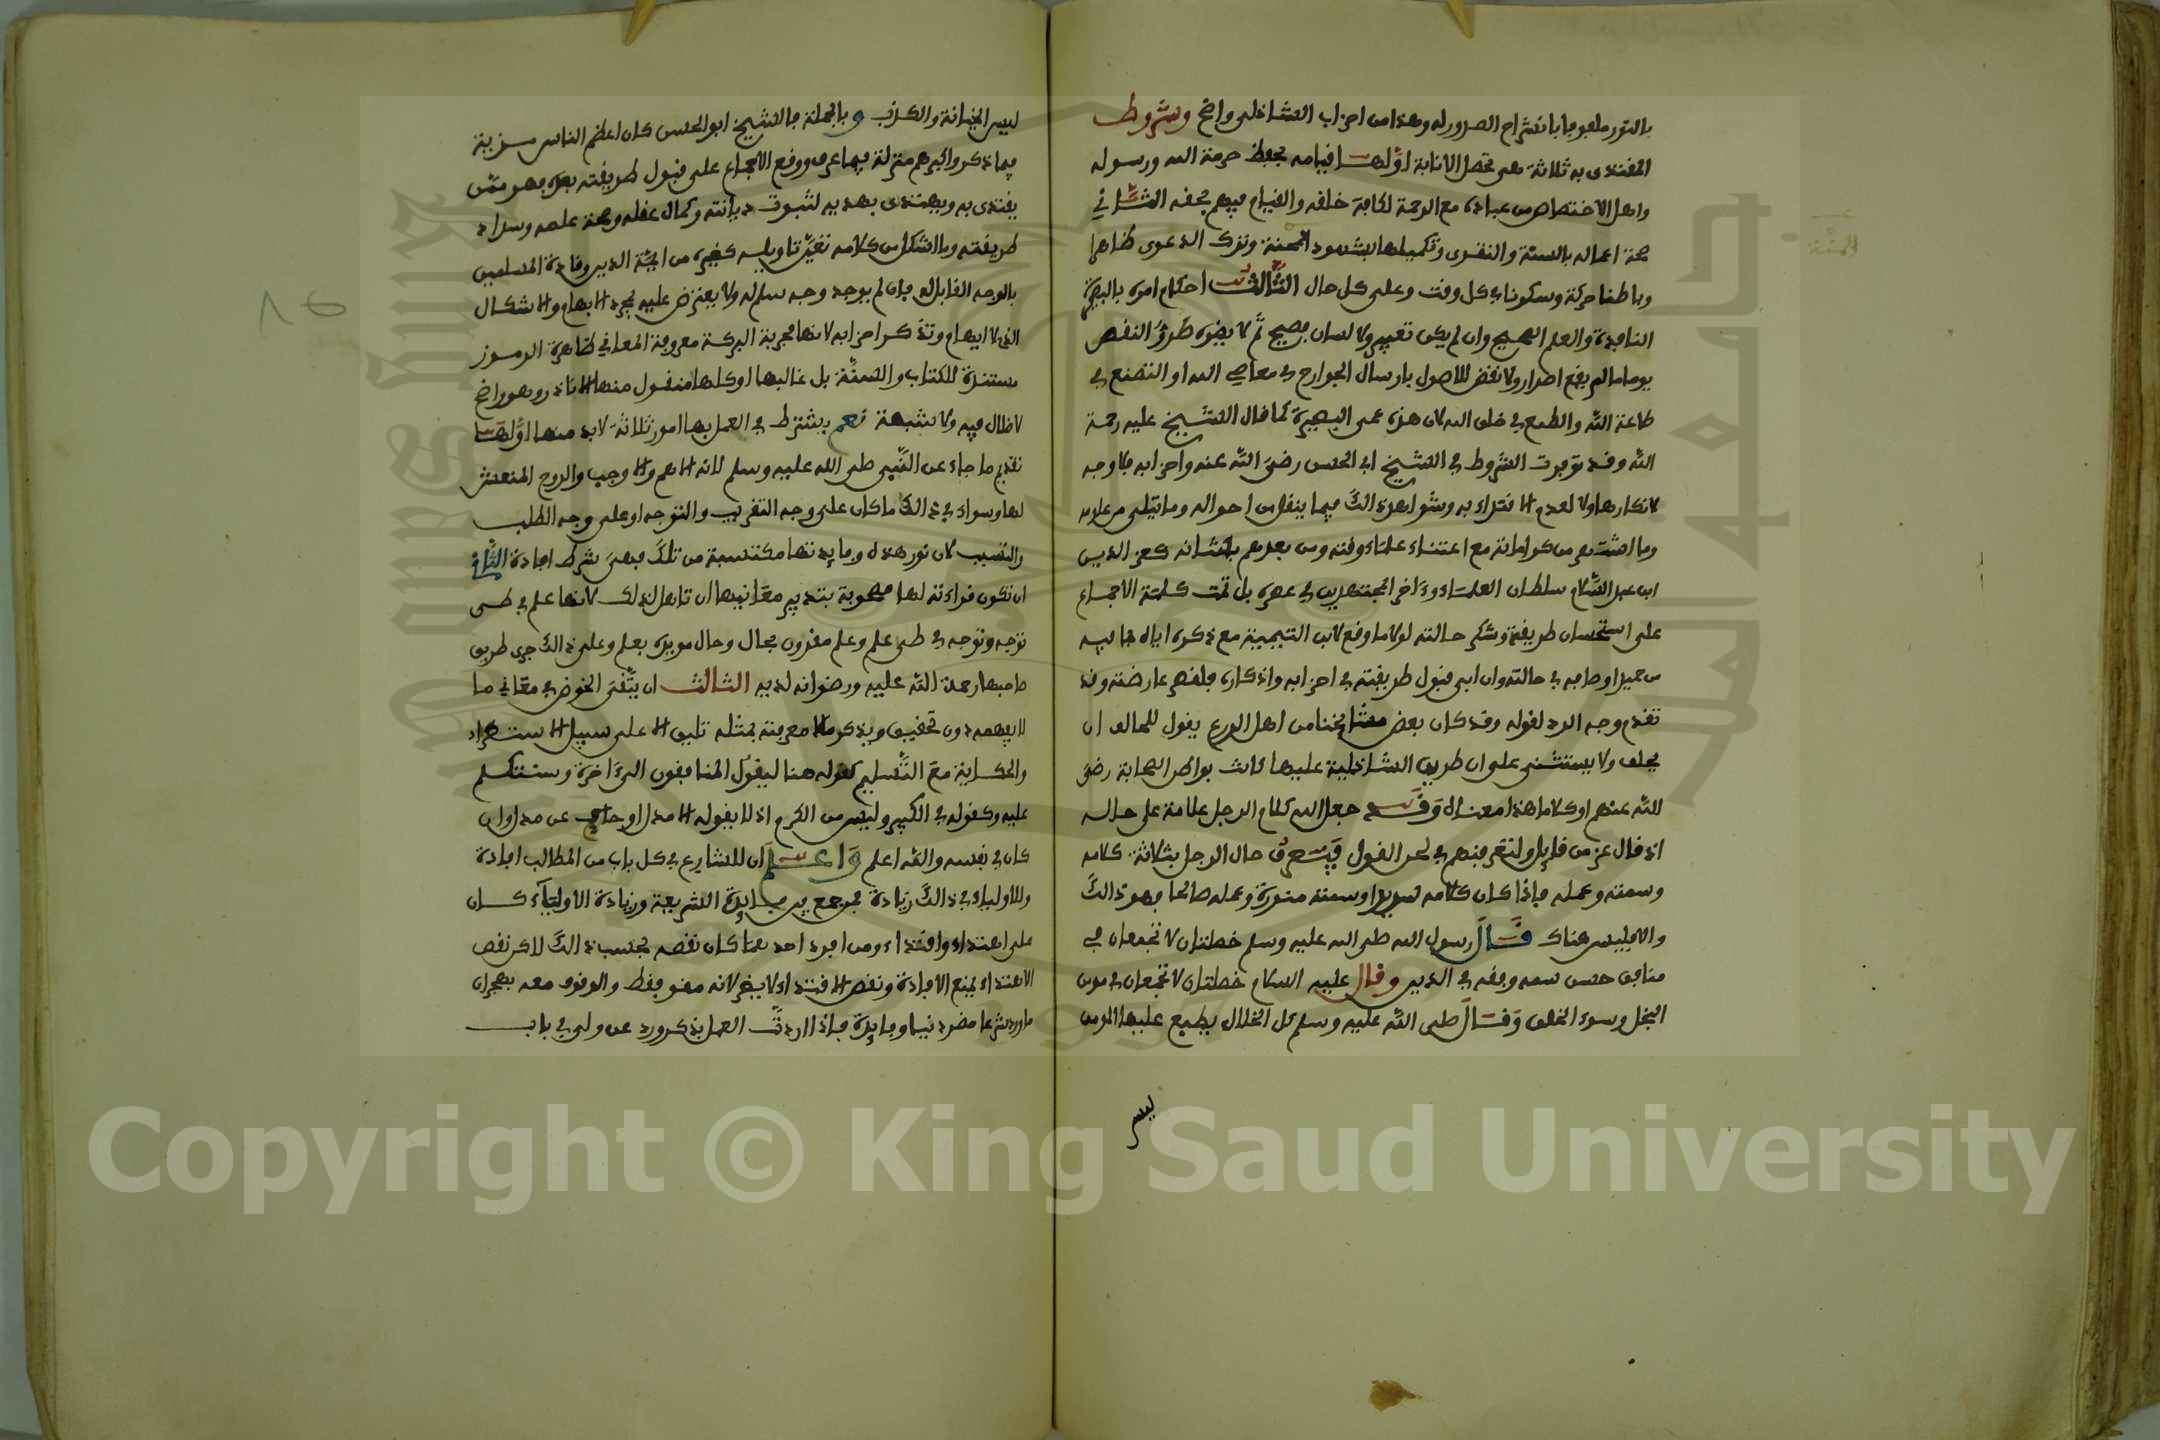 بالنور ملفوفا بانشراح الصدور له وهذا من احزاب الشاذلي واضح وشروط
المقتدى به ثلاثة هي محصل الانابة اولها قيامه بحفظ حرمة الله ورسوله
واهل الاختصاص من عباده مع الرحمة لكافة خلقه والقيام فيهم بحقه الثاني
صحة اعماله بالسنة والتقوى وتكميلها بشهود المنة وترك الدعوى ظاهرا
وباطنا حركة وسكونا في كل وقت وعلى كل حال الثالث احكام امره بالبصيرة
النافذة والعلم الصحيح وان لم يكن تعبير ولا لسان فصيح ثم لا يضره طروء النقص
يوما ما لم يقع اصرار ولا نقض للاصول بارسال الجوارح في معاصي الله او التصنع في
طاعة الله والطمع في خلق الله لان هذه عمى البصيرة كما قال الشيخ عليه رحمة
الله وقد توفرت الشروط في الشيخ ابي الحسن رضي الله عنه واحزابه فلا وجه
لانكارها ولا لعدم الاقتداء به وشواهد ذالك فيما ينقل من احواله وما يتلى من علومه
وما اشتهر من كراماته مع اعتناء علماء وقته ومن بعدهم بشانه كعز الدين
ابن عبد السلام سلطان العلماء وءاخر المجتهدين في عصره بل تمت كلمة الاجماع
على استحسان طريقته وشكر حالته لولا ما وقع لابن التيمية مع ذكره اياه بما فيه
من جميل اوصافه في حالته وان ابى قبول طريقته في احزابه واذكاره فلنقص عارضته وقد
تقدم وجه الرد لقوله وقد كان بعض مشايخنا من اهل الورع يقول للحالف ان
يحلف ولا يستثنى على ان طريق الشاذلية عليها كانت بواطن الصحابة رضي
الله عنهم او كلاما هذا معناه وقد جعل الله كلام الرجل علامة على حاله
اذ قال عز من قايل ولتعرفنهم في لحن القول فيتعرف حال الرجل بثلاثة كلامه
وسمته وعمله فاذا كان كلامه سديدا وسمته منورة وعمله صالحا فهو ذالك
والا فليس هناك قال رسول الله صلى الله عليه وسلم خصلتان لا تجتمعان في
منافق حسن سمت وفقه في الدين وقال عليه السلام خصلتان لا تجتمعان في مومن
البخل وسوء الخلق وقال صلى الله عليه وسلم كل الخلال يطبع عليها المومن
ليس
ليس الخيانة والكذب وبالجملة فالشيخ ابو الحسن كان اعظم الناس مزية
فيما ذكر واكبرهم منزلة فيما عرف ووقع الاجماع على قبول طريقته بعده فهو ممن
يقتدى به ويهتدى بهديه لثبوت ديانته وكمال عقله وصحة علمه وسداد
طريقته وما اشكل من كلامه تعين تاويله كغيره من ايمة الدين وقادة المسلمين
بالوجه القابل له فان لم يوجد وجه سلم له ولا يعترض عليه بمجرد الابهام والاشكال
الذي لا ايهام وتذكر احزابه لانها مجربة البركة معروفة المعاني ظاهرة الرموز
مستندة للكتاب والسنة بل غالبها او كلها منقول منها الا نادر وهو واضح
لا ظلل فيه ولا شبهة نعم يشترط في العمل بها امور ثلاثة لابد منها اولها
تقديم ما جاء عن النبي صلى الله عليه وسلم لانه الاهم والاوجب والروح المنعش
لها وسواء في ذالك ما كان على وجه التقريب والتوجه او على وجه الطلب
والتسبب لان نور هذه وفايدتها مكتسبة من تلك فهي شرط افادة الثاني
ان تكون قراءته لها مصحوبة بتدبر معانيها ان تاهل لذلك لانها علم في طى
توجه وتوجه في طى علم وعلم مقرون بحال وحال مويد بعلم وعلى ذالك جرى طريق
صاحبها رحمة الله عليه ورضوانه لديه الثالث ان يتقي الخوض في معاني ما
لا يفهمه دون تحقيق ويذكر ما لا معرفة بمثله تليق الا على سبيل الاستظهار
والحكاية مع التسليم كقوله هنا ليقول المنافقون الى ءاخره وسنتكلم
عليه وكقوله في الكبير وليس من الكرم اذ لا يقوله الا مدل او حاكي عن مدل وان
كان في نفسه والله اعلم واعلم ان للشارع في كل باب من المطالب افادة
وللاولياء في ذالك زيادة فمن جمع بين فايدة الشريعة وزيادة الاولياء كان
على اهتداء واقتداء ومن افرد احدهما كان نقصه بحسب ذالك لاكن نقص
الاهتداء يمنع الافادة ونقص الاقتداء لا يضر لانه مقو فقط والوقوف معه بهجران
ما ورد شرعا مضر دنيا وفايدة فاذا اردت العمل بذكر ورد عن ولي في باب
Copyright © King Saud University